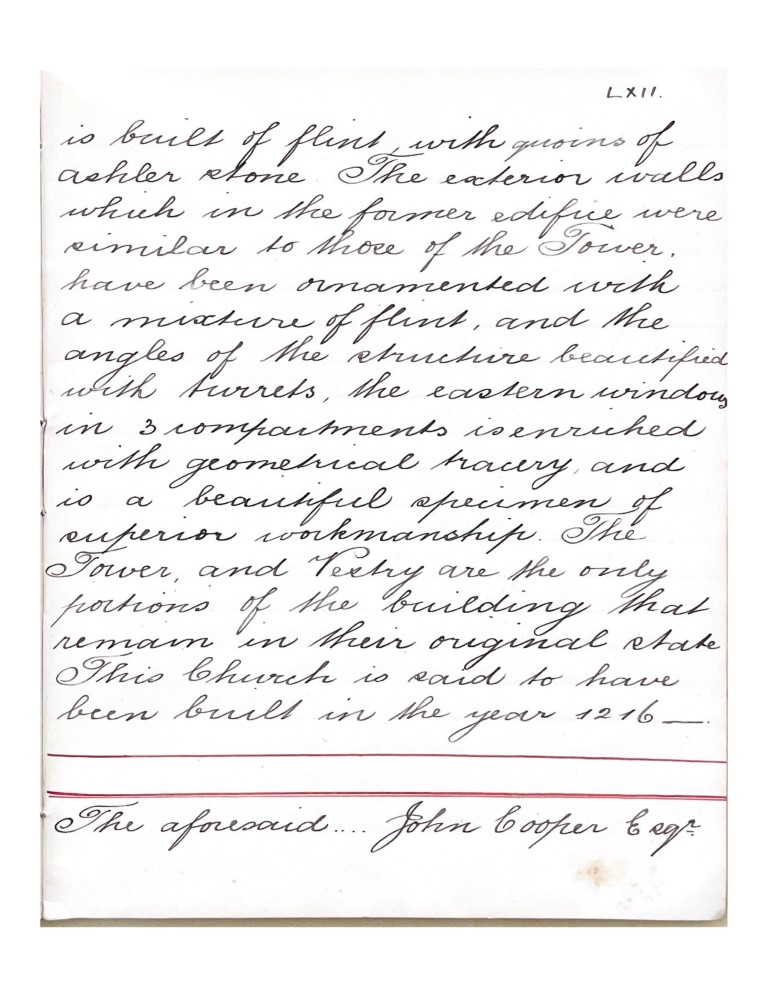 LXII.
is built of flint, with quoins of
ashler stone The exterior walls
which in the former edifice were
similar to those of the Tower.
have been ornamented with
a mixture of flint, and the
angles of the structure beautified
with turrets, the eastern windows
in 3 compartments is enriched
with geometrical tracery, and
is a beautiful specimen of
superior workmanship. The
Tower, and Vestry are the only
portions of the building that
remain in their original state
This Church is said to have
been built in the year 1216 —.
The aforesaid .... John Cooper Esqr.